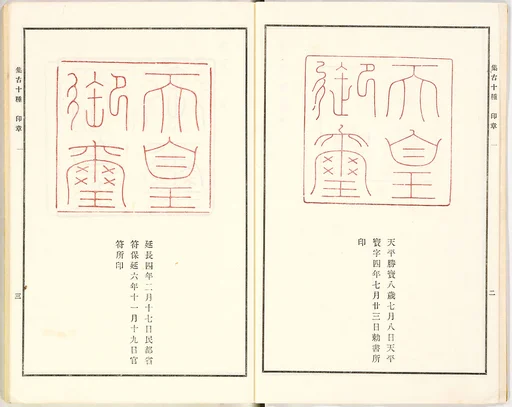 集古十種 印章 一
天皇
御璽
天平勝寶八歳七月八日天平
寶字四年七月廿三日勅書所
印
二
天皇
御璽
延長四年二月十七日民部省
符保延六年十一月十九日官
符所印
集古十種 印章 一
三